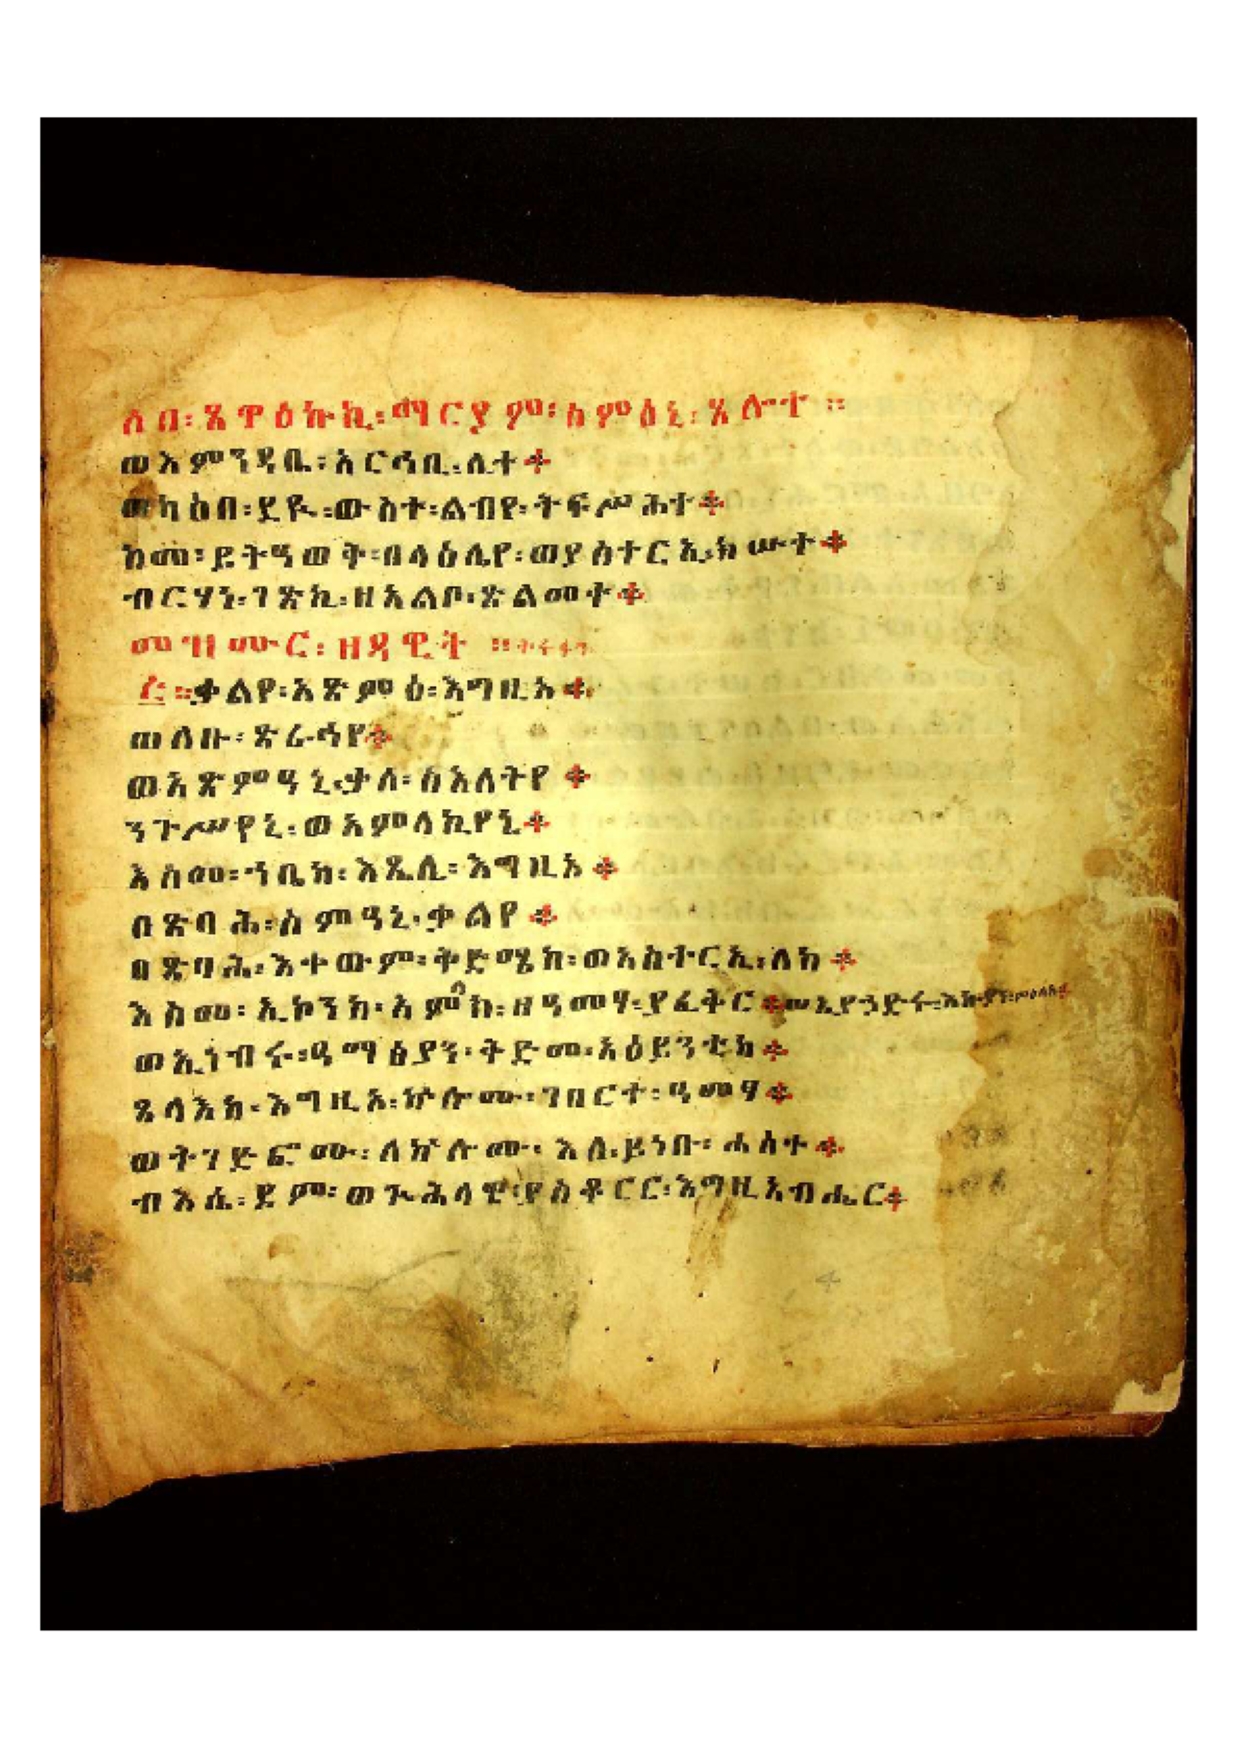 ሶበ፡ጼዋዕኩኪ፡ማርያም፡ስምዕኒ፡ጸሎተ ።
ወእምንዳቤ፡አርኅቢ፡ሊተ
ወካዕበ፡ደዪ፡ውስተ፡ልብየ፡ትፍሥሕተ
ከመ፡ይትዓወቅ፡በላዕሌየ፡ወያስተርኢ፡ክሡተ
ብርሃነ፡ገጽኪ፡ዘአልቦ፡ጽልመተ
መዝሙር፡ዘዳዊት ።
፭ ። ቃልየ፡አጽምዕ፡እግዚአ
ወለቡ፡ጽራኅየ
ወአጽምዓኒ፡ቃለ፡ስእለትየ
ንጉሥየኒ፡ወአምላኪየኒ
እስመ፡ኀቤከ፡እጼሊ፡እግዚአ
በጽባሕ፡ስምዓኒ፡ቃልየ
በጽባሕ፡እቀውም፡ቅድሜከ፡ወአስተርኢ፡ለከ
እስመ፡ኢኮንከ፡አምላከ፡ዘዓመፃ፡ያፈቅር ወኢየኃድሩ፡እኩያን፡ምስሌከ
ወኢነብሩ፡ዓማፅያን፡ቅድመ፡አዕይንቲከ
ጸላእከ፡እግዚአ፡ኵሎሙ፡ገበርተ፡ዓመፃ
ወትገድፎሙ፡ለኵሎሙ፡እለ፡ይነቡ፡ሐሰተ
ብእሴ፡ደም፡ወጕሕላዌ፡ያስቆርር፡እግዚአብሔር